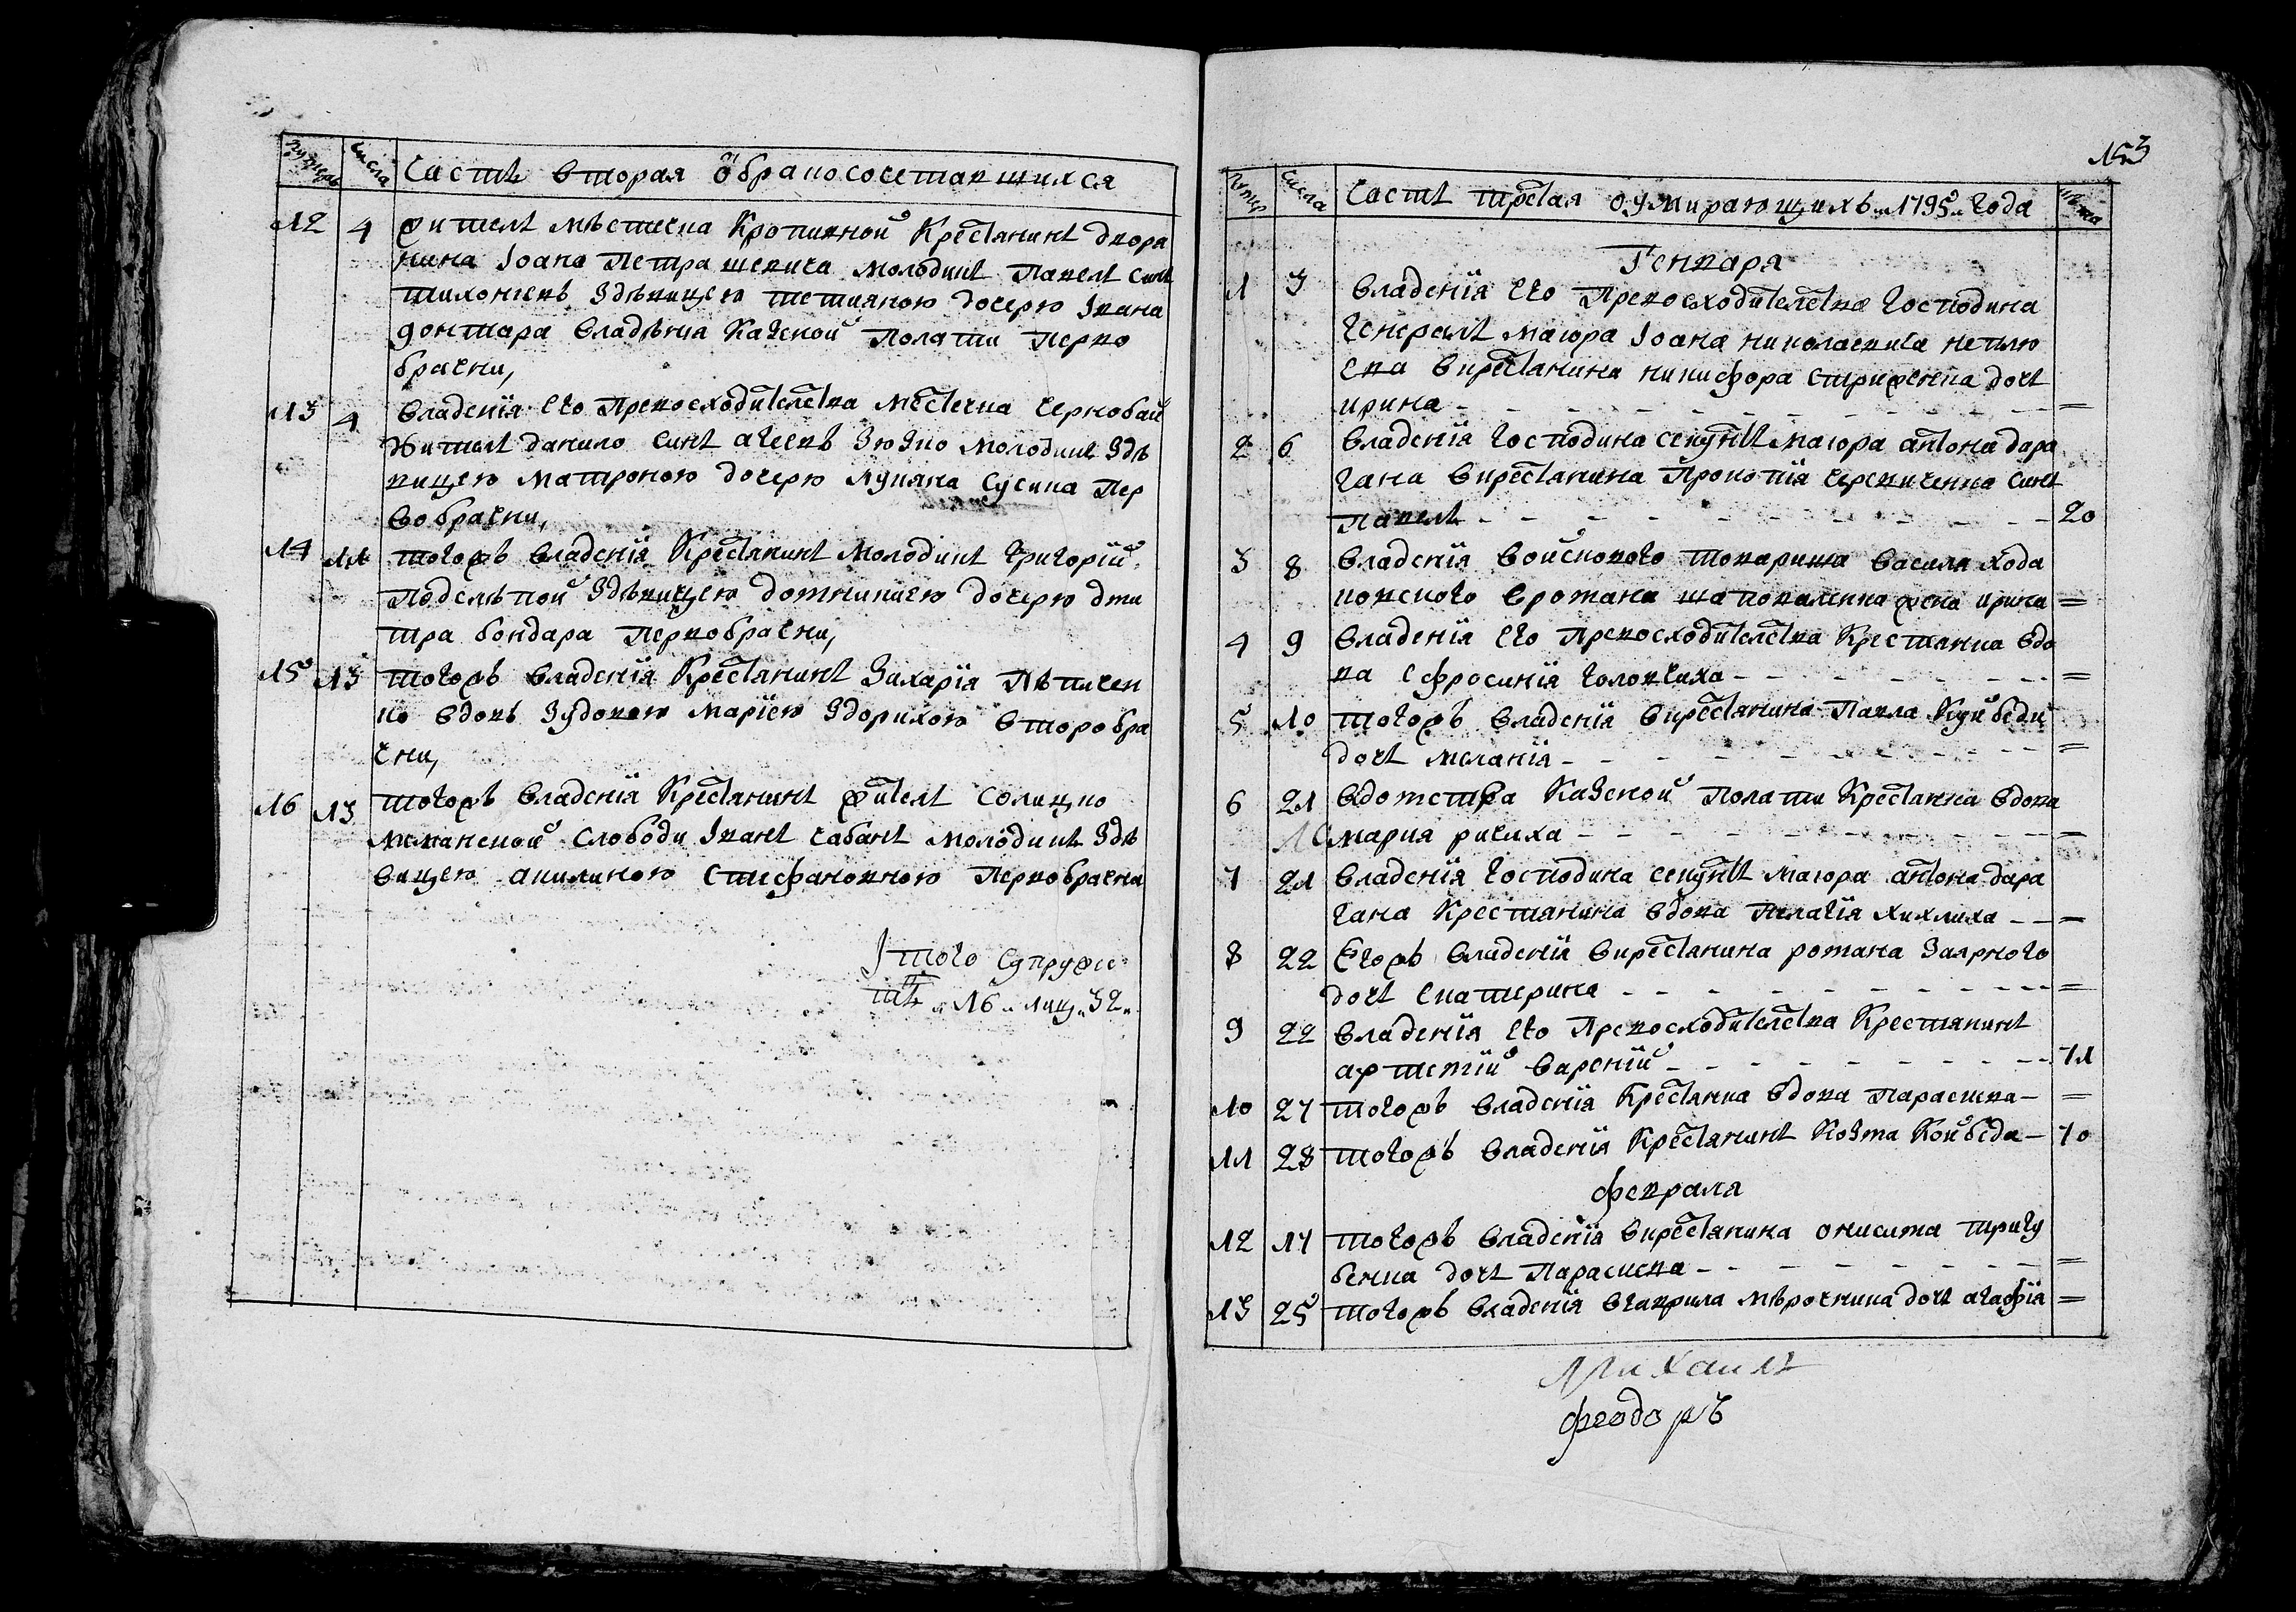 Нумеръ Числа Часть вторая ѡ бракосочетавшихся
12 4 житель мѣстечка Кропивной Крестянинъ дворя
нина Іоана Петрашевича молодикъ Павелъ Синъ
тихоненъ Здѣвицею тетианою дочерю Ивана
гонтара владѣния Казеной Полати Перво
брачни,
13 4 владения Его Превосходителства местечка Чернобай
житель данило Синъ агеевъ Зюзко молодикъ Здѣ
вицею матроною дочерю лукяна Сусика Пер
вобрачни,
14 11 тогожъ владения Крестянинъ молодикъ григорій
Подслѣпой Здѣвицею домникиею дочерю дми
тра бондара Первобрачни,
15 13 тогожъ владения Крестянинъ Захарія Пѣпчен
ко вдовъ Зудовою Маріею Здорихою второбра
чни,
16 13 тогожъ владения Крестянинъ житель Солицко
слободи Іванъ Чабанъ молодикъ Здѣ
вицею акилиною Стефановною Первобрачни
Ітого Супруже
ствъ 16 лиц 32
153
Нумер Числа Часть третая оумирающихъ 1795 года лѣта
Генваря
1 3 владения Его Превосходителства господина
генералъ маіора Іоана николаевича неплю
ева вкрестянина никифора стриженка дочь
ирина =
2 6 владения господина секунтъ маіора антона дара
гана вкрестянина Прокопія Черевиченка Синъ
Павелъ 20
3 8 владения войскового товариша василя хода
ковского вромана шаповаленка жена ирина =
4 9 владения Его Превосходителства Крестянка вдо
ва Ефросинія головчиха =
5 10 тогожъ владения вкрестянина Павла Куйбеди
дочь меланія =
6 21 вдомства Казеной Полати Крестянка вдова
мария ричиха =
7 21 владения господина секунтъ маіора антона дара
гана Крестянина вдова Пелагія хихлиха =
8 22 Егожъ владения вкрестянина романа Заярного
дочь Екатерина =
9 22 владения Его Превосходителства Крестянинъ
артемій варений 71
10 27 тогожъ владения Крестянка вдова Параскева =
11 28 тогожъ владения Крестянинъ Козма Койбеда 70
февраля
12 17 тогожъ владения вкрестянина онисима тригу
бенка дочь Параскева =
13 25 тогожъ владения вгаврила мѣрочника дочь агафія =
Михаилъ
Феодоръ